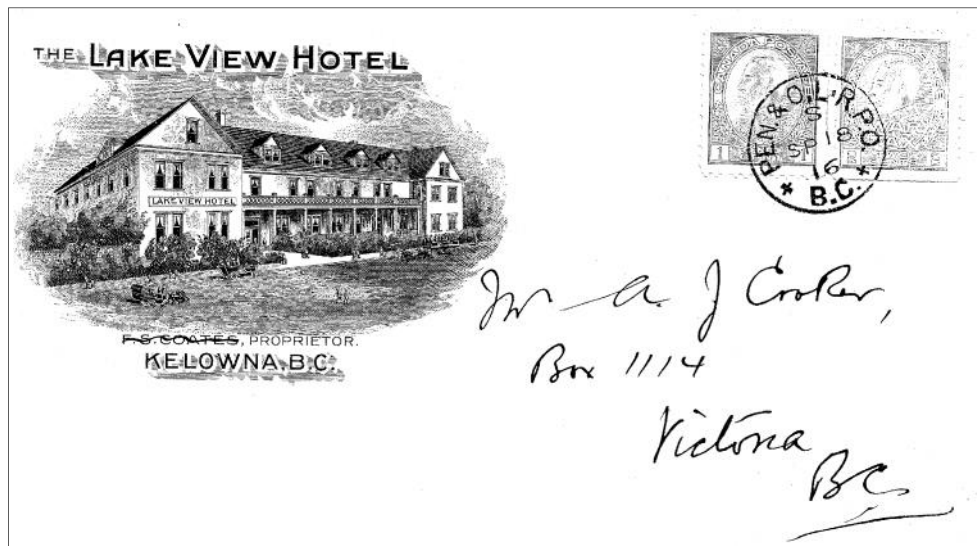 THE LAKE VIEW HOTEL
LAKE VIEW HOTEL
F.S. COATES, PROPRIETOR.
KELOWNA, B.C.
CANADA POSTAGE
1 1
PEN. & O.L. R.P.O.
S
SP 18
16
B.C.
Mr A. J Crocker,
Box 1114
Victoria
BC